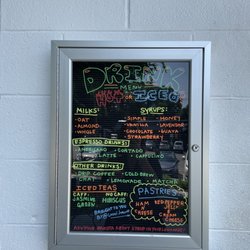 DRINK
MENU
HOT OR ICED
MILKS: SYRUPS:
- OAT - SIMPLE - HONEY
- ALMOND - VANILLA - LAVENDAR
- WHOLE - CHOCOLATE - GUAVA
- STRAWBERRY
ESPRESSO DRINKS:
- AMERICANO - CORTADO
- LATTE - CAPPUCINO
OTHER DRINKS:
- DRIP COFFEE - COLD BREW
- CHAI - LEMONADE - MATCHA
ICED TEAS PASTRIES
CAFF: NO CAFF:
JASMINE HIBISCUS
GREEN
HAM N' CHEESE
RED PEPPER N' CREAM CHEESE
BROUGHT TO YOU
BY